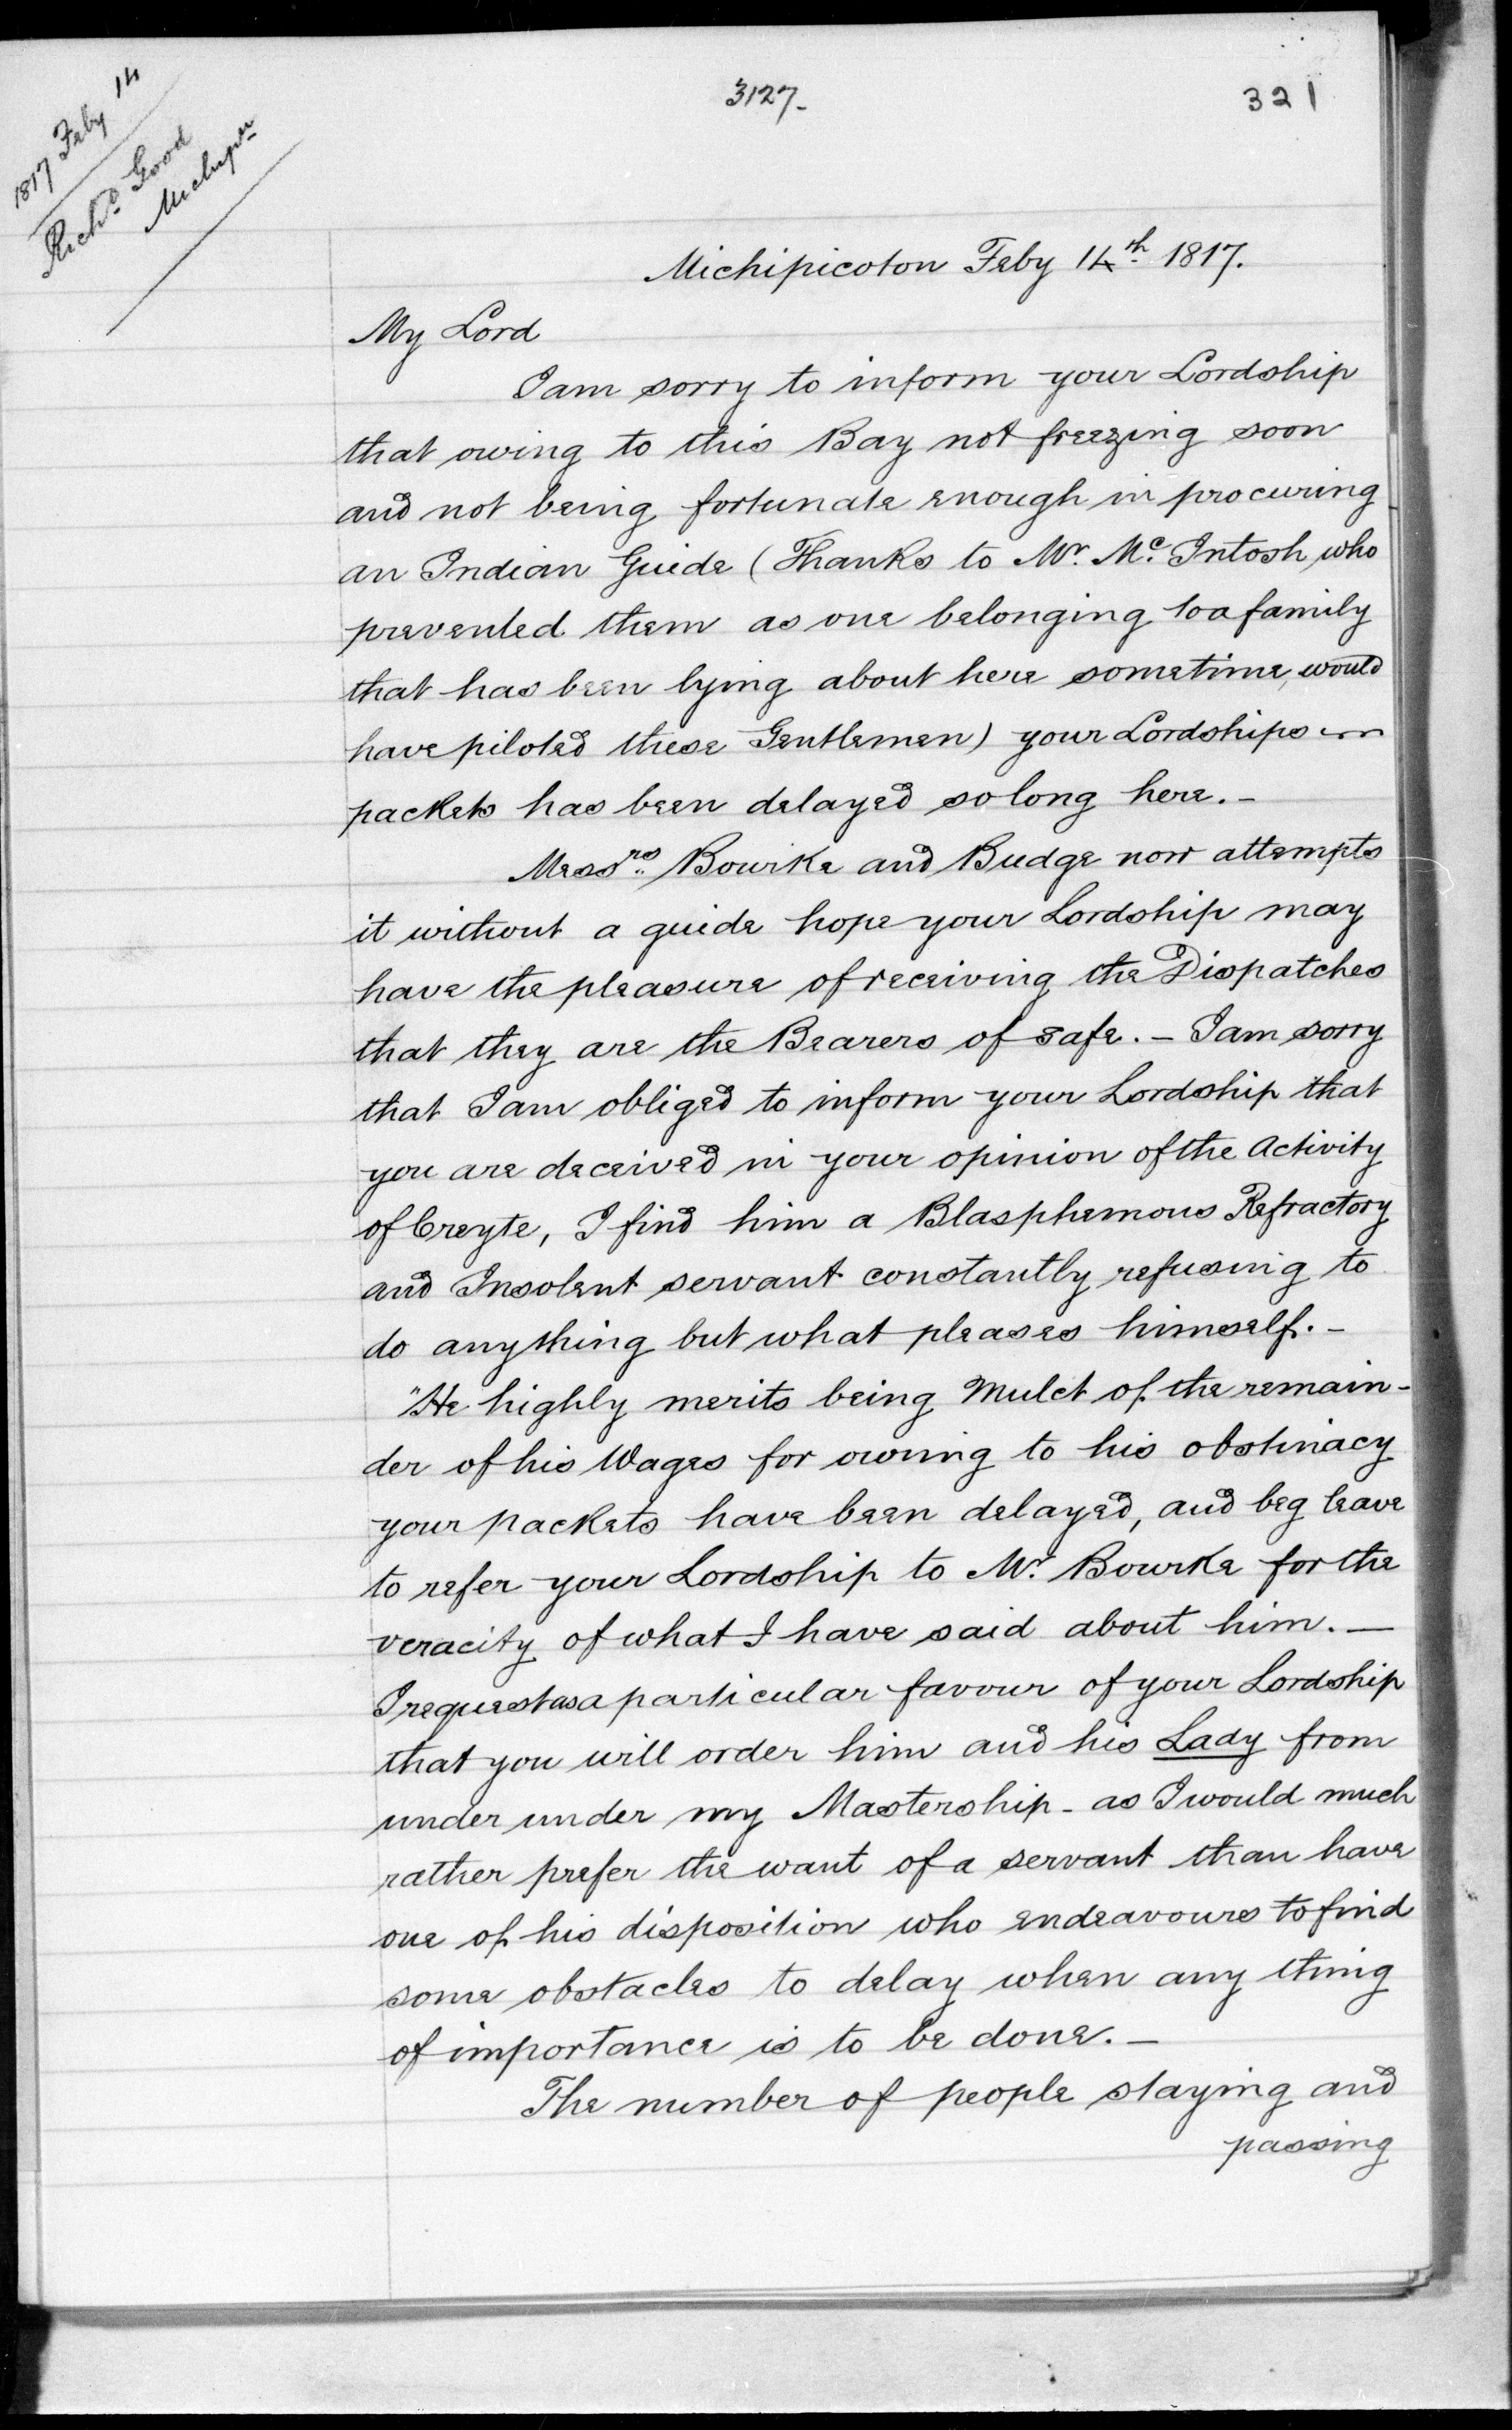 1817 Feby 14
Richd. Good
Michipn
3127-
321
Michipicoton Feby 14th 1817.
My Lord
I am sorry to inform your Lordship
that owing to this Bay not freezing soon
and not being fortunate enough in procuring
an Indian Guide (Thanks to Mr. Mc. Intosh who
prevented them as one belonging to a family
that has been lying about here sometime, would
have piloted these Gentlemen) your Lordships
packets has been delayed so long here. -
Messrs. Bourke and Budge now attempts
it without a guide hope your Lordship may
have the pleasure of receiving the Dispatches
that they are the Bearers of safe. - I am sorry
that I am obliged to inform your Lordship that
you are deceived in your opinion of the Activity
of Creyte, I find him a Blasphemous Refractory
and Insolent servant constantly refusing to
do anything but what pleases himself. -
"He highly merits being Mulct of the remain-
der of his Wages for owing to his obstinacy
your packets have been delayed, and beg leave
to refer your Lordship to Mr. Bourke for the
veracity of what I have said about him. -
I request as a particular favour of your Lordship
that you will order him and his Lady from
under under my Mastership - as I would much
rather prefer the want of a servant than have
one of his disposition who endeavours to find
some obstacles to delay when any thing
of importance is to be done. -
The number of people staying and
passing